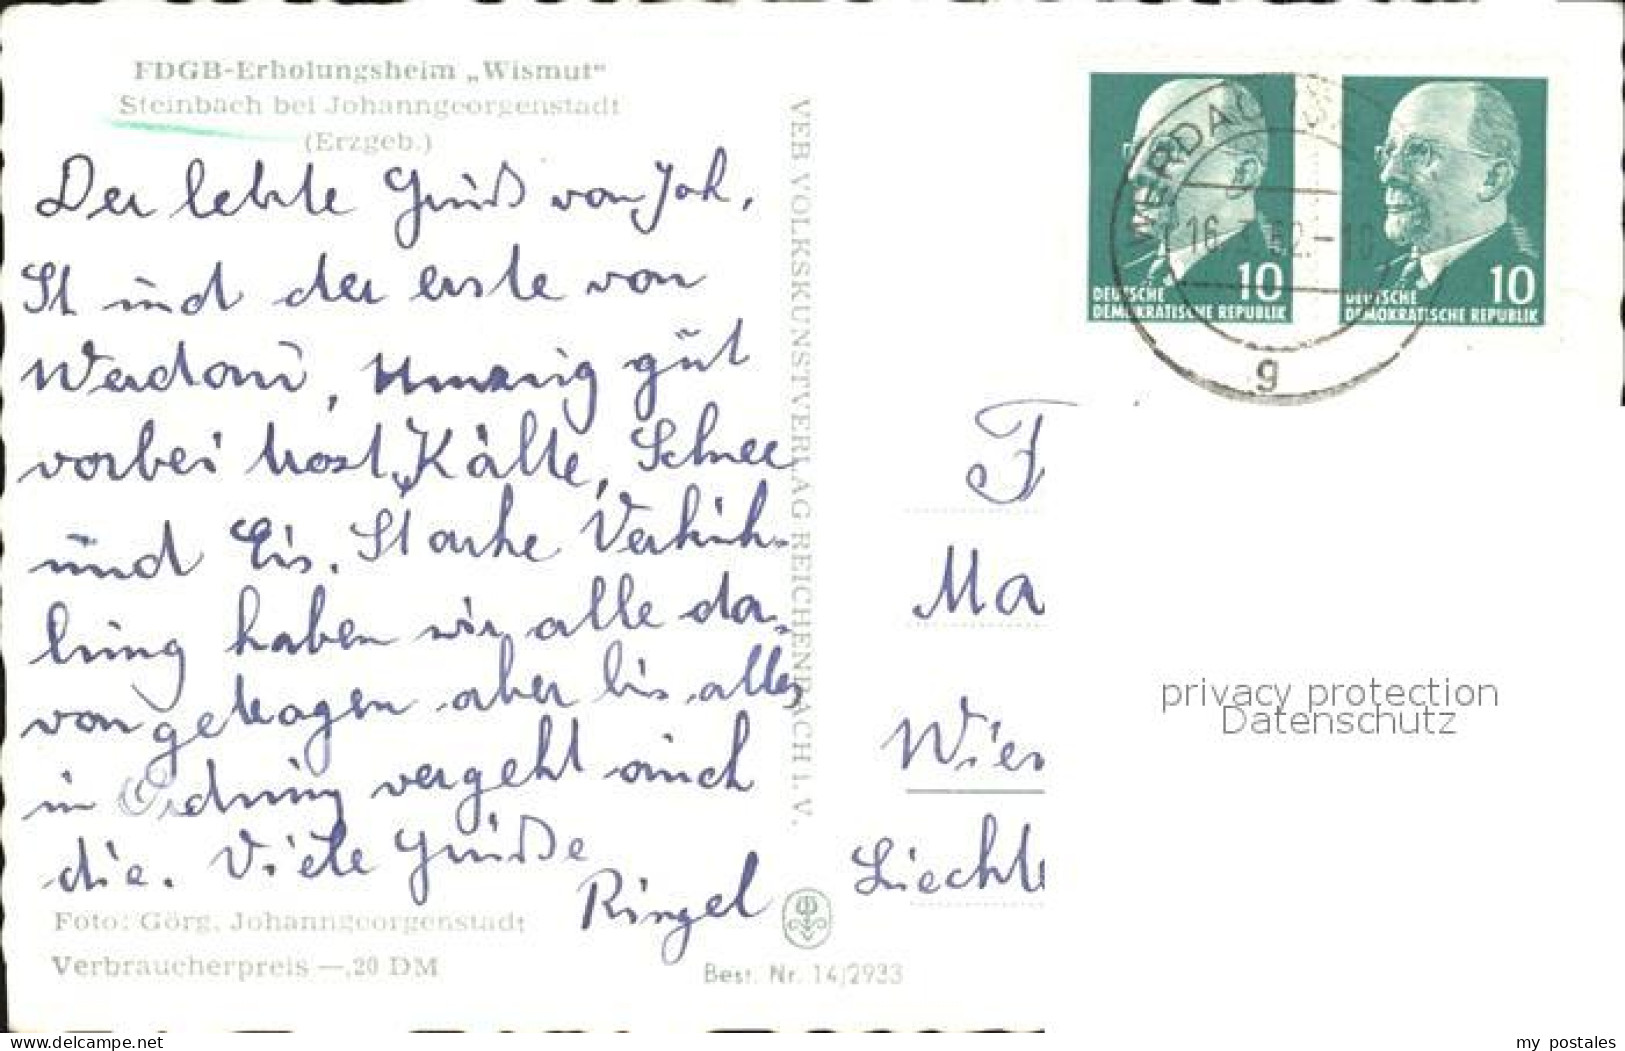 FDGB-Erholungsheim „Wismut"
Steinbach bei Johanngeorgenstadt
(Erzgeb.)
Der letzte Gruß von Joh,
St und der erste von
Werdau, Umzug gut
vorbei trost Kälte, Schnee
und Eis. Starke Verküh-
lung haben wir alle da-
von getragen aber bis alles
in Ordnung vergeht auch
die. Viele Grüße
Ringel
Foto: Görg, Johanngeorgenstadt
Verbraucherpreis —,20 DM
Best. Nr. 14/2933
VEB VOLKSKUNSTVERLAG REICHENBACH I. V.
WERDAU
16. 62.-10
g
10
DEUTSCHE
DEMOKRATISCHE REPUBLIK
10
DEUTSCHE
DEMOKRATISCHE REPUBLIK
F
Ma
Wien
Liecht
privacy protection
Datenschutz
www.delcampe.net
my_postales